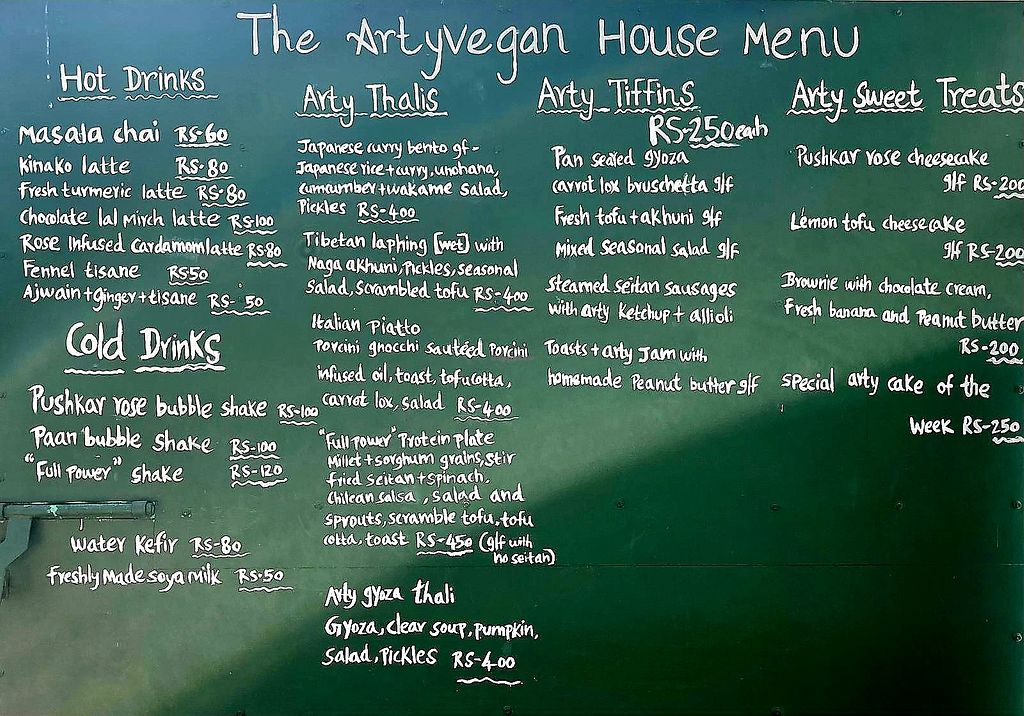 The Artyvegan House Menu
Hot Drinks
Masala chai RS-60
Kinako latte RS-80
Fresh turmeric latte RS-80
Chocolate lal Mirch latte RS-100
Rose Infused Cardamom latte RS-80
Fennel tisane RS50
Ajwain+ginger+tisane RS- 50
Cold Drinks
Pushkar rose bubble shake RS-100
Paan bubble shake RS-100
"Full Power" shake RS-120
Water Kefir RS-80
Freshly Made soya Milk RS-50
Arty Thalis
Japanese curry bento gf-
Japanese rice+curry, unohana,
cumcumber+wakame salad,
Pickles RS-400
Tibetan laphing [wet] with
Naga akhuni, Pickles, seasonal
salad, scrambled tofu RS-400
Italian Piatto
Porcini gnocchi sautéed Porcini
infused oil, toast, tofucotta,
carrot lox, salad RS-400
"Full Power" Protein Plate
Millet+sorghum grains, stir
fried seitan+spinach,
Chilean salsa, salad and
sprouts, scramble tofu, tofu
cotta, toast RS-450 (g/f with
no seitan)
Arty gyoza thali
Gyoza, clear soup, pumpkin,
salad, Pickles RS-400
Arty Tiffins
RS-250 each
Pan seared gyoza
carrot lox bruschetta g/f
Fresh tofu+akhuni g/f
Mixed seasonal salad g/f
Steamed seitan sausages
with arty Ketchup+allioli
Toasts+arty Jam with
homemade Peanut butter g/f
Arty Sweet Treats
Pushkar rose cheesecake
g/f RS-200
Lemon tofu cheesecake
g/f RS-200
Brownie with chocolate cream,
Fresh banana and Peanut butter
RS-200
special arty cake of the
Week RS-250